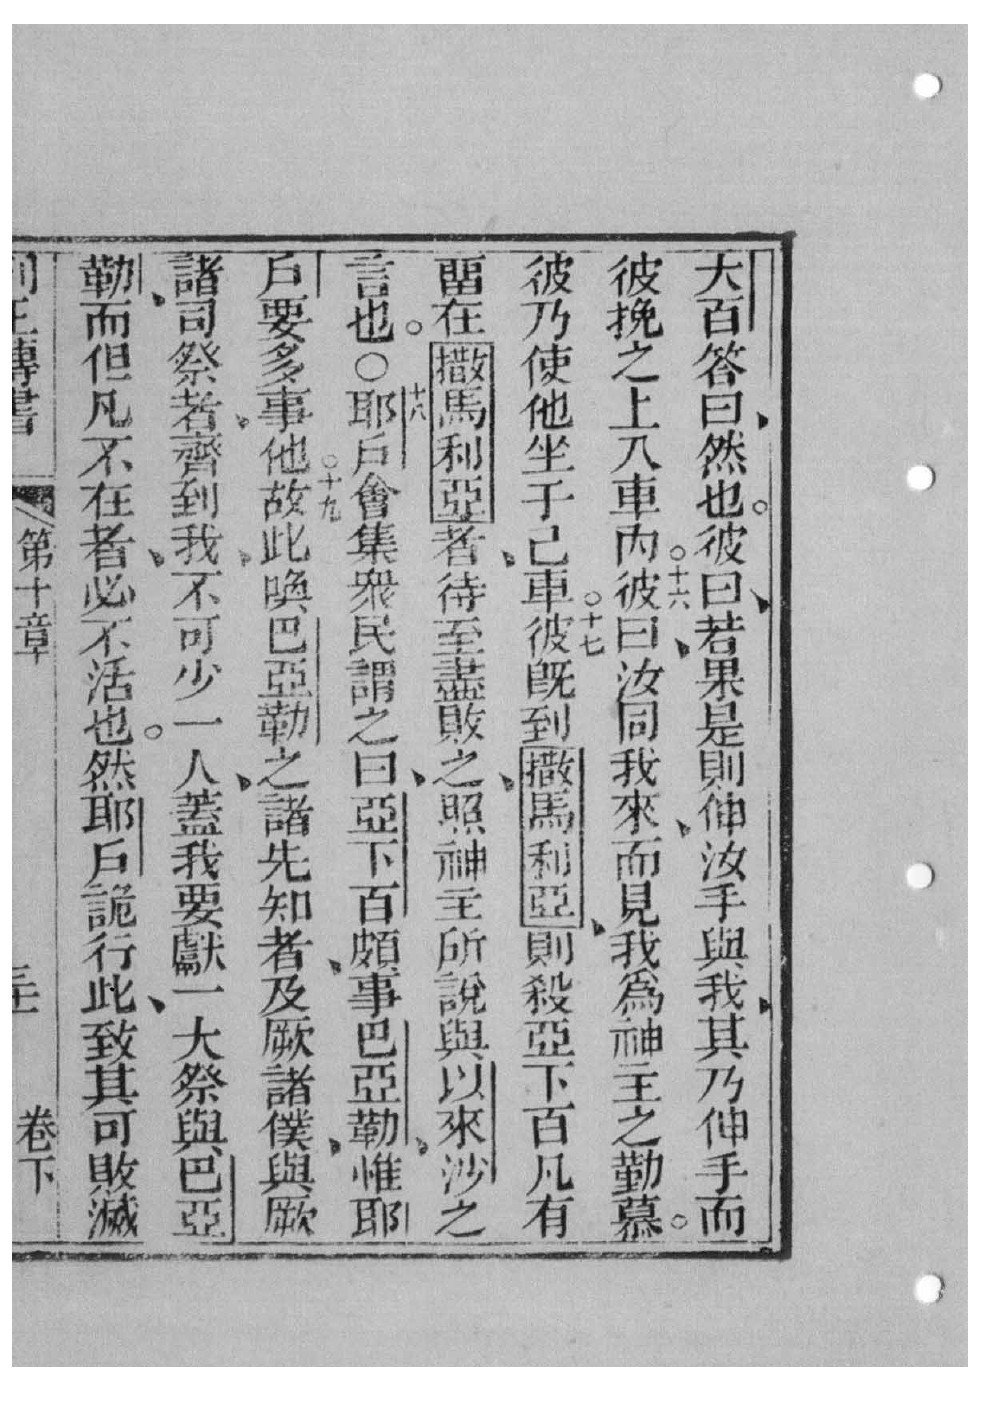 大百答曰然也。彼曰若果是則伸汝手與我其乃伸手而
彼挽之上入車內○十六彼曰汝同我來而見我為神主之勤慕。
彼乃使他坐于己車○十七彼既到撒馬利亞則殺亞下百凡有
畱在撒馬利亞者待至盡敗之照神主所說與以來沙之
言也。○十八耶戶會集衆民謂之曰亞下百頗事巴亞勒惟耶
戶要多事他○十九故此喚巴亞勒之諸先知者及厥諸僕與厥
諸司祭者齊到我不可少一人蓋我要獻一大祭與巴亞
勒而但凡不在者必不活也。然耶戶詭行此致其可敗滅
列王傳書 第十章 卷下